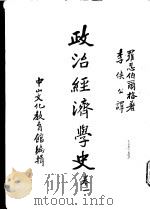 羅忍伯爾格著
李俠公譯
政治經濟學史
中山文化教育館編輯